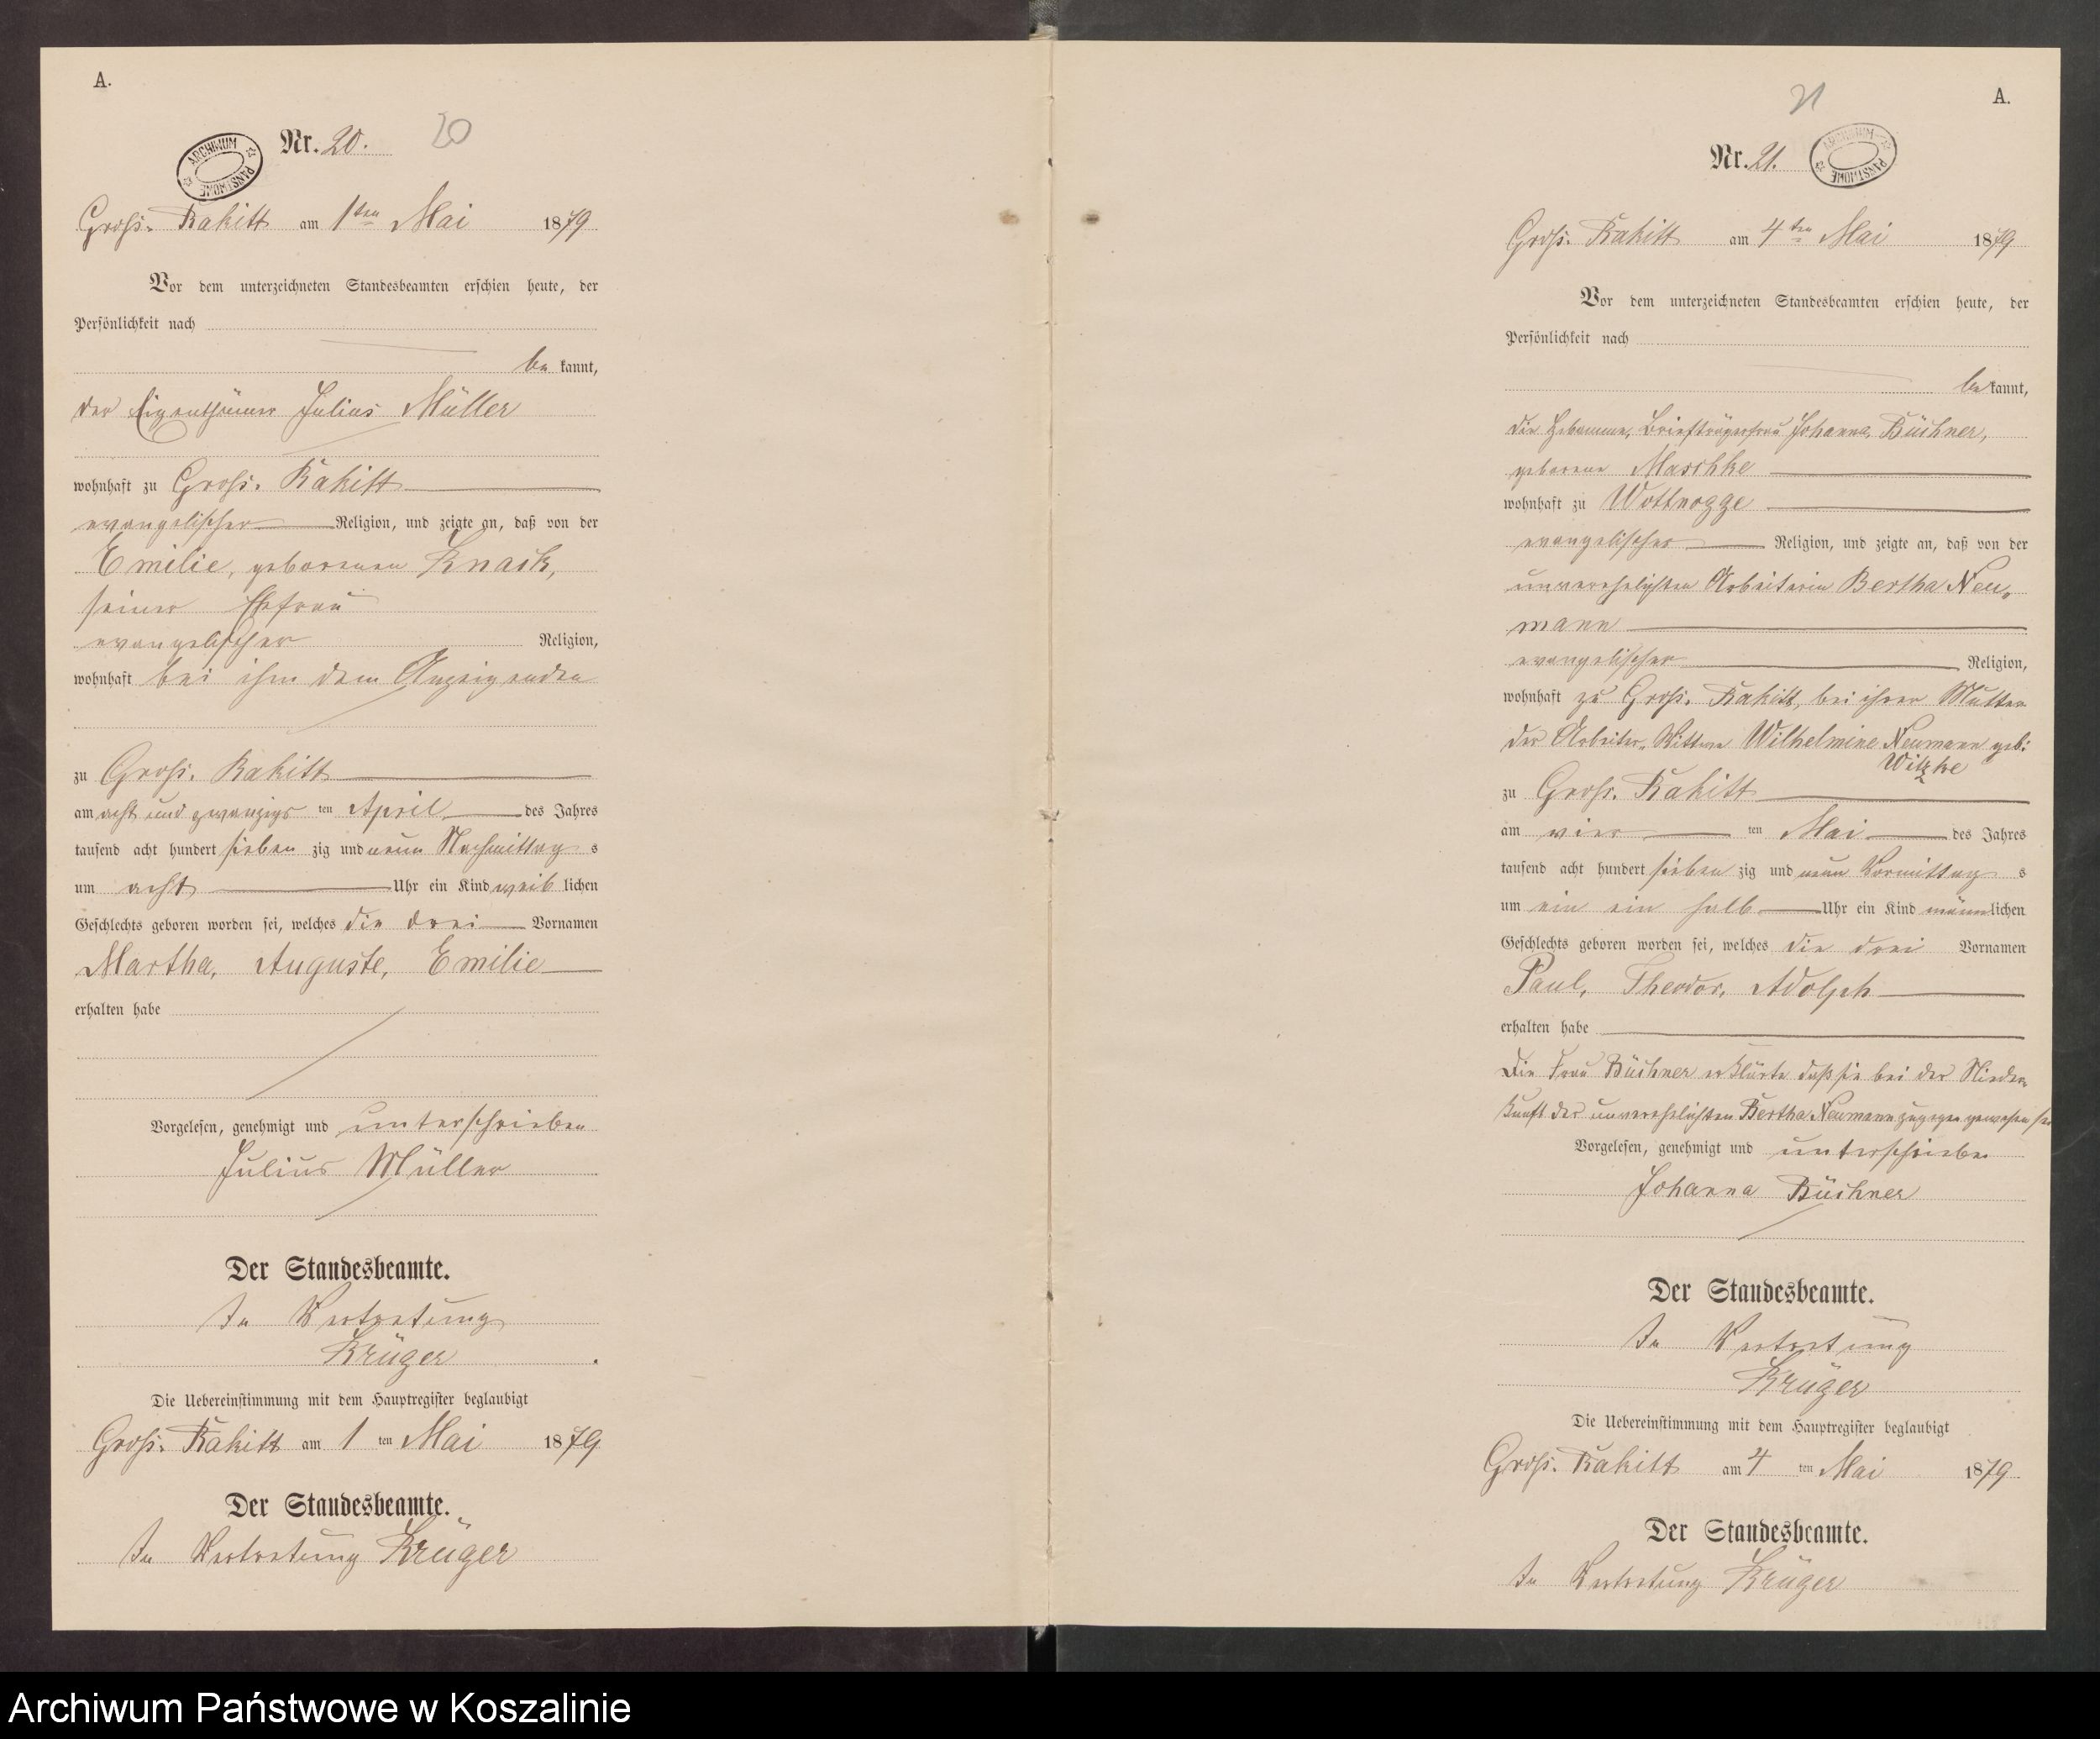 A.
Nr. 20. 20
ARCHIWUM PAŃSTWOWE
Groß. Rakitt am 1ten Mai 1879
Vor dem unterzeichneten Standesbeamten erschien heute, der
Persönlichkeit nach
be kannt,
der Eigenthümer Julius Müller
wohnhaft zu Groß. Rakitt
evangelischer Religion, und zeigte an, daß von der
Emilie, geborenen Knack,
seiner Ehefrau
evangelischer Religion,
wohnhaft bei ihm dem Anzeigenden
zu Groß. Rakitt
am acht und zwanzigs ten April des Jahres
tausend acht hundert sieben zig und neun Nachmittag s
um acht Uhr ein Kind weib lichen
Geschlechts geboren worden sei, welches die drei Vornamen
Martha, Auguste, Emilie
erhalten habe
Vorgelesen, genehmigt und unterschrieben
Julius Müller
Der Standesbeamte.
In Vertretung
Krüger
Die Uebereinstimmung mit dem Hauptregister beglaubigt
Groß. Rakitt am 1 ten Mai 1879
Der Standesbeamte.
In Vertretung Krüger
21 A.
Nr. 21.
ARCHIWUM PAŃSTWOWE
Groß. Rakitt am 4ten Mai 1879
Vor dem unterzeichneten Standesbeamten erschien heute, der
Persönlichkeit nach
be kannt,
die Hebamme, Briefträgerfrau Johanna Büchner,
geborene Maschke
wohnhaft zu Wottnogge
evangelischer Religion, und zeigte an, daß von der
unverehelichten Arbeiterin Bertha Neu-
mann
evangelischer Religion,
wohnhaft zu Groß. Rakitt, bei ihrer Mutter
der Arbeiter-Wittwe Wilhelmine Neumann geb:
Witzke
zu Groß. Rakitt
am vier ten Mai des Jahres
tausend acht hundert sieben zig und neun Vormittag s
um ein ein halb Uhr ein Kind männlichen
Geschlechts geboren worden sei, welches die drei Vornamen
Paul, Theodor, Adolph
erhalten habe
Die Frau Büchner erklärte daß sie bei der Nieder-
kunft der unverehelichten Bertha Neumann zugegen gewesen sei
Vorgelesen, genehmigt und unterschrieben
Johanna Büchner
Der Standesbeamte.
In Vertretung
Krüger
Die Uebereinstimmung mit dem Hauptregister beglaubigt
Groß. Rakitt am 4 ten Mai 1879
Der Standesbeamte.
In Vertretung Krüger
Archiwum Państwowe w Koszalinie